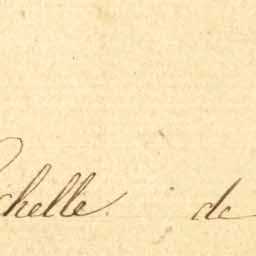 chelle. de